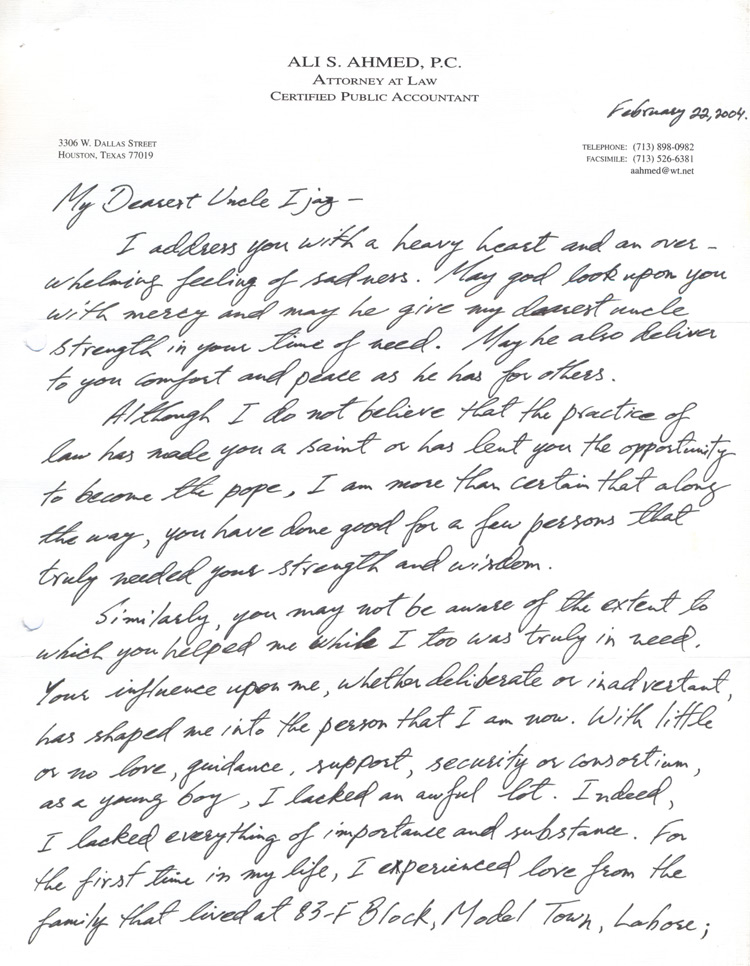 ALI S. AHMED, P.C.
ATTORNEY AT LAW
CERTIFIED PUBLIC ACCOUNTANT
February 22, 2004.
3306 W. DALLAS STREET
HOUSTON, TEXAS 77019
TELEPHONE: (713) 898-0982
FACSIMILE: (713) 526-6381
aahmed@wt.net
My Dearest Uncle Ijaz –
I address you with a heavy heart and an over-
whelming feeling of sadness. May god look upon you
with mercy and may he give my dearest uncle
strength in your time of need. May he also deliver
to you comfort and peace as he has for others.
Although I do not believe that the practice of
law has made you a saint or has lent you the opportunity
to become the pope, I am more than certain that along
the way, you have done good for a few persons that
truly needed your strength and wisdom.
Similarly, you may not be aware of the extent to
which you helped me while I too was truly in need.
Your influence upon me, whether deliberate or inadvertant,
has shaped me into the person that I am now. With little
or no love, guidance, support, security or consortium,
as a young boy, I lacked an awful lot. Indeed,
I lacked everything of importance and substance. For
the first time in my life, I experienced love from the
family that lived at 83-F Block, Model Town, Lahore;